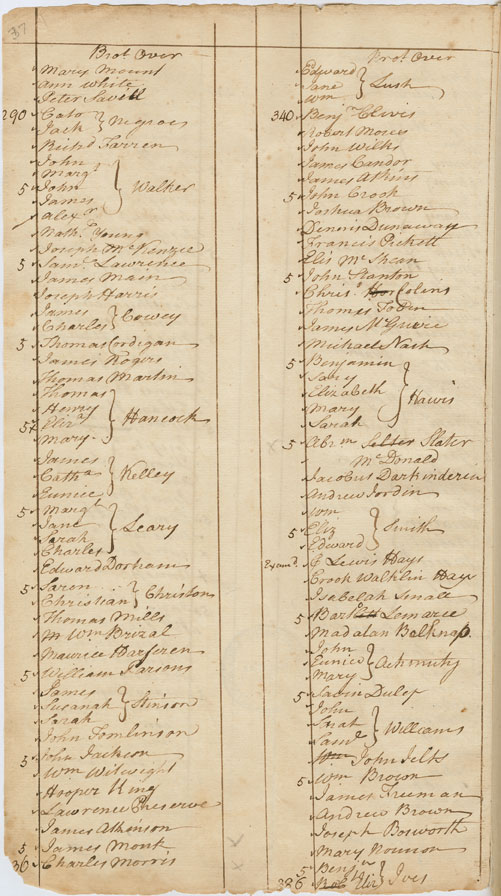 37
Brot Over
Mary Mount
Ann White
Peter Savell
290 Cato
Jack } Negroes
Farren
John
Margt
5 John } Walker
James
Alexr
Nathl Young
Joseph McKenzie
5 Saml Lawrence
James Main
Joseph Harris
James
Charles } Cowey
5 Thomas Cordigan
James Rogers
Thomas Martin
Thomas
Henry
57 Eliza } Hancock
Mary
James
Catha } Kelley
Eunice
5 Margt
Jane
Sarah } Leary
Charles
Edward Dorham
5 Saron
Christian } Christon
Thomas Mills
Wm Brizal
Maurice
5 William Parsons
James
Susanah } Stinson
Sarah
John Tomlinson
5 John Jackson
Wm Witwight
Hooper King
Lawrence Preserve
James Atkenson
5 James Mont
36 Charles Morris
Brot Over
Edward
Jane } Lush
Wm
340 Benjn Clewis
Robert Moses
John Wilks
James Candor
James Atkins
5 John Crook
Joshua Brown
Dennis Dunaway
Francis Pickett
Elis Mc Shean
5 John Stanton
Chrisr Colins
Thomas Tobin
James McGuire
Michael Nash
5 Benjamin
Sary
Elizabeth } Hawis
Mary
Sarah
5 Abrm Selter Slater
Mc Donald
Jacobus Darkinderin
Andrew Jordin
Wm
5 Eliz } Smith
Edward
Examd C Lewis Hays
Crook Walklin Hays
Isabelah Small
5 Lemaree
Madalan Belknap
John
Eunice } Achmuty
Mary
5 Sabin Dulop
John
Sarat } Williams
Saml
Wm John Jelts
5 Wm Brown
James Freeman
Andrew Brown
Joseph Bosworth
Mary
5 Benjn
386 Eliz } Ives